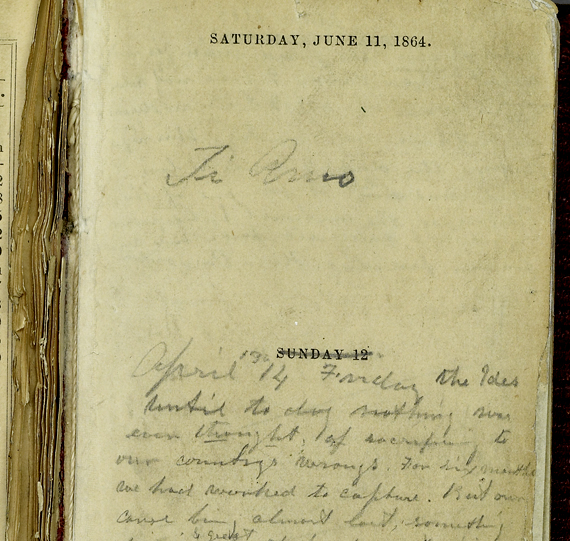 SATURDAY, JUNE 11, 1864.
Ti Amo
SUNDAY 12
April 14 Friday the Ides
until to day nothing was
ever thought of sacrificing to
our country's wrongs. For six months
we had worked to capture. But our
cause being almost lost, something
great